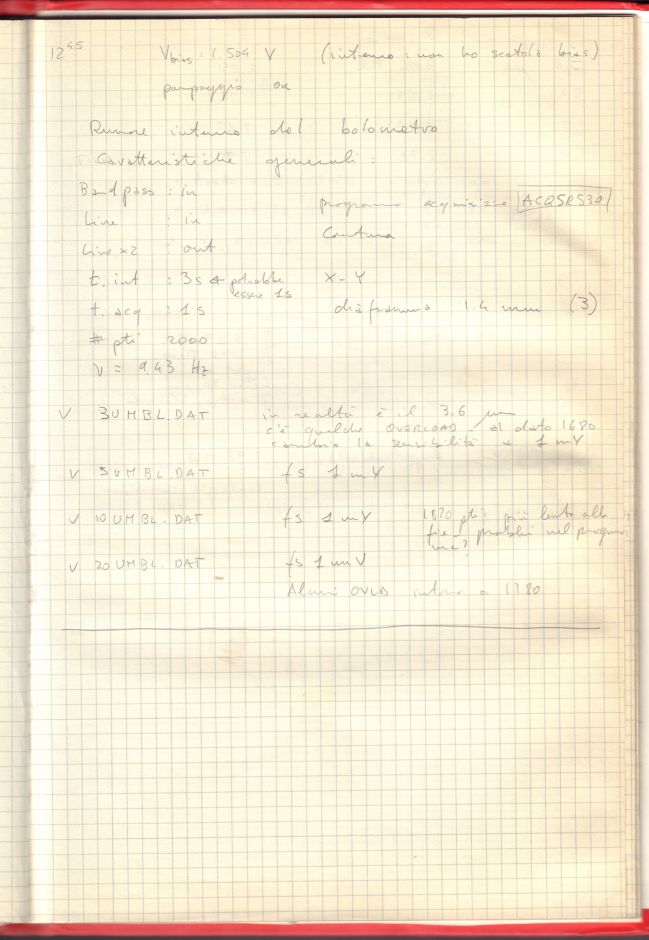 12 45 Vbias = 1.504 V (interno: non ho scatola bias)
pompaggio ok
Rumore interno del bolometro
Caratteristiche generali:
Bandpass : in
programma acquisizione ACQSR530
Line : in
Line x2 : out
t. int : 3s ← potrebbe essere 1s
X-Y
t. acq : 1s
diaframma 1.4 mm (3)
# pti 2000
ν = 9.43 Hz
V 3UMBL.DAT in realtà è il 3.6 μm
c'è qualche OVERLOAD - al dato 1680
cambio la sensibilità → 1 mV
V 5UMBL.DAT fs 1 mV
V 10UMBL.DAT fs 1 mV 1820 pti: più lento alla
fine - problemi nel program
ma?
V 20UMBL.DAT fs 1 mV
Alcuni OVLD intorno a 1780